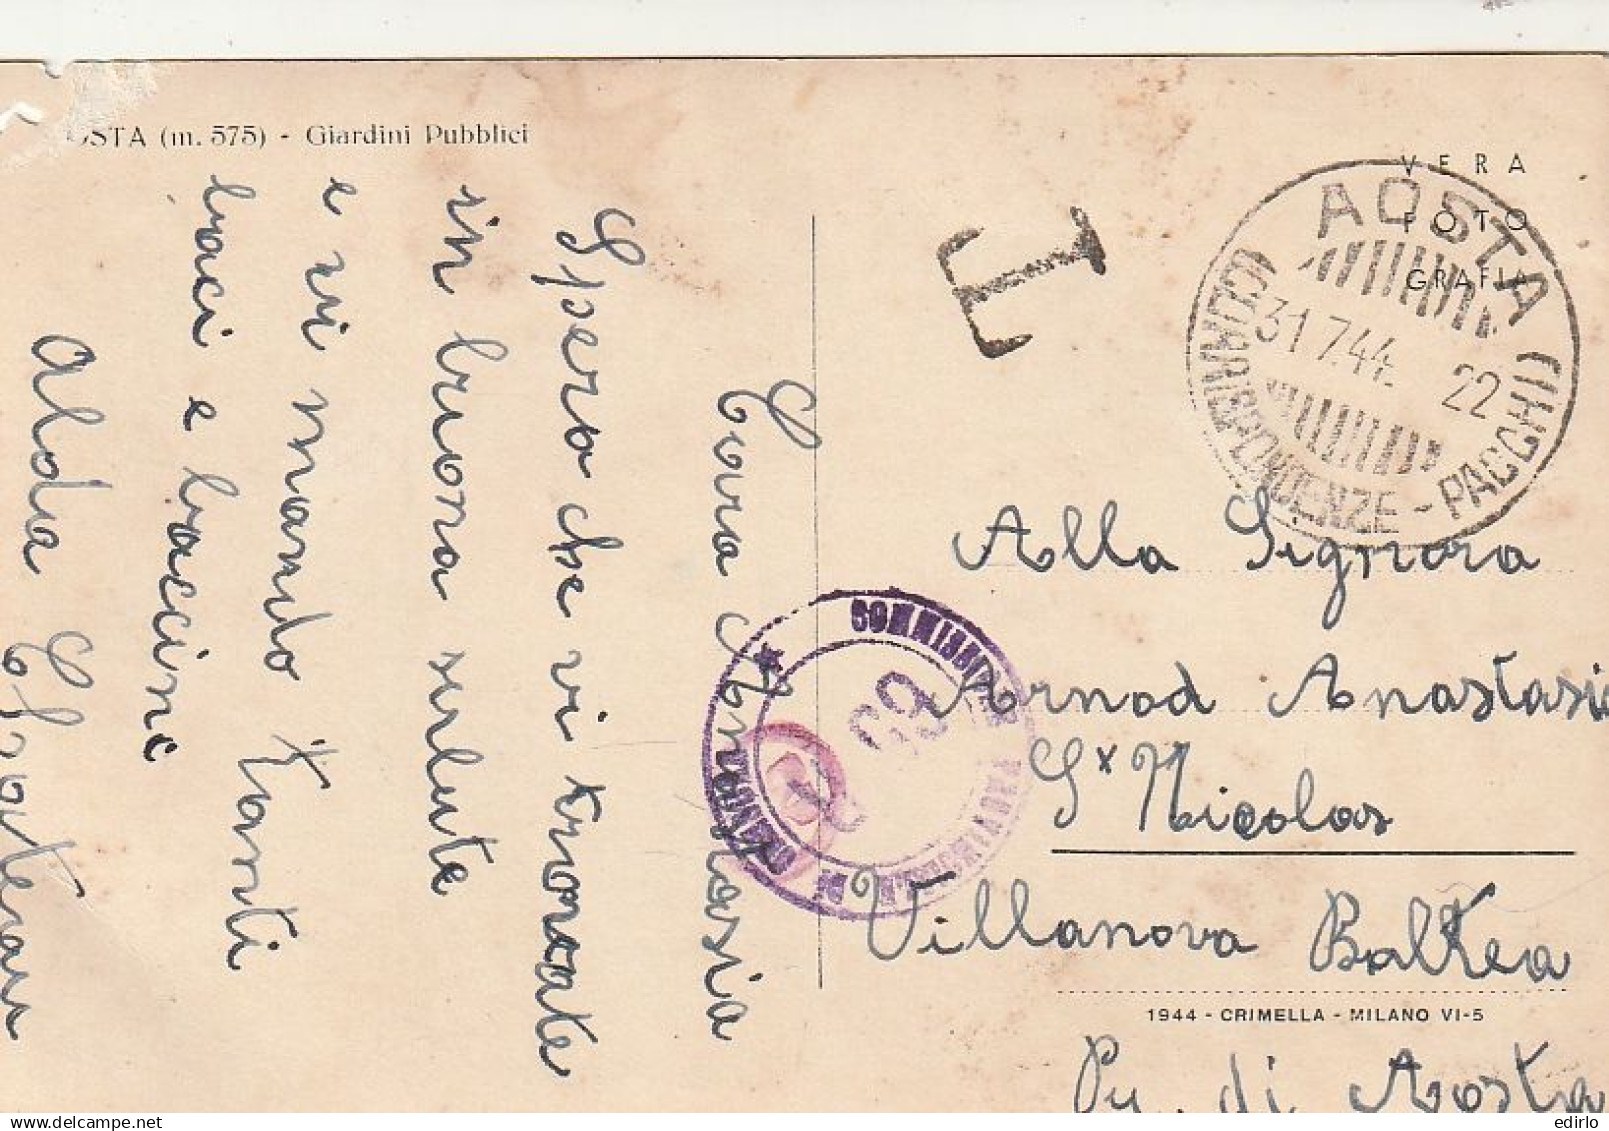 OSTA (m. 575) - Giardini Pubblici
VERA
FOTO
GRAFIA
AOSTA
(CORRISPONDENZE - PACCHI)
31 7.44. 22
T
Cara Anastasia
Spero che vi trovate
in buona salute
e vi mando tanti
baci e baccini
Alda
Alla Signora
Arnod Anastasia
St Nicolas
Villanova Baltea
1944 - CRIMELLA - MILANO VI-5
Pv. di Aosta
COMMISSIONE PROVINCIALE DI
69
edirlo